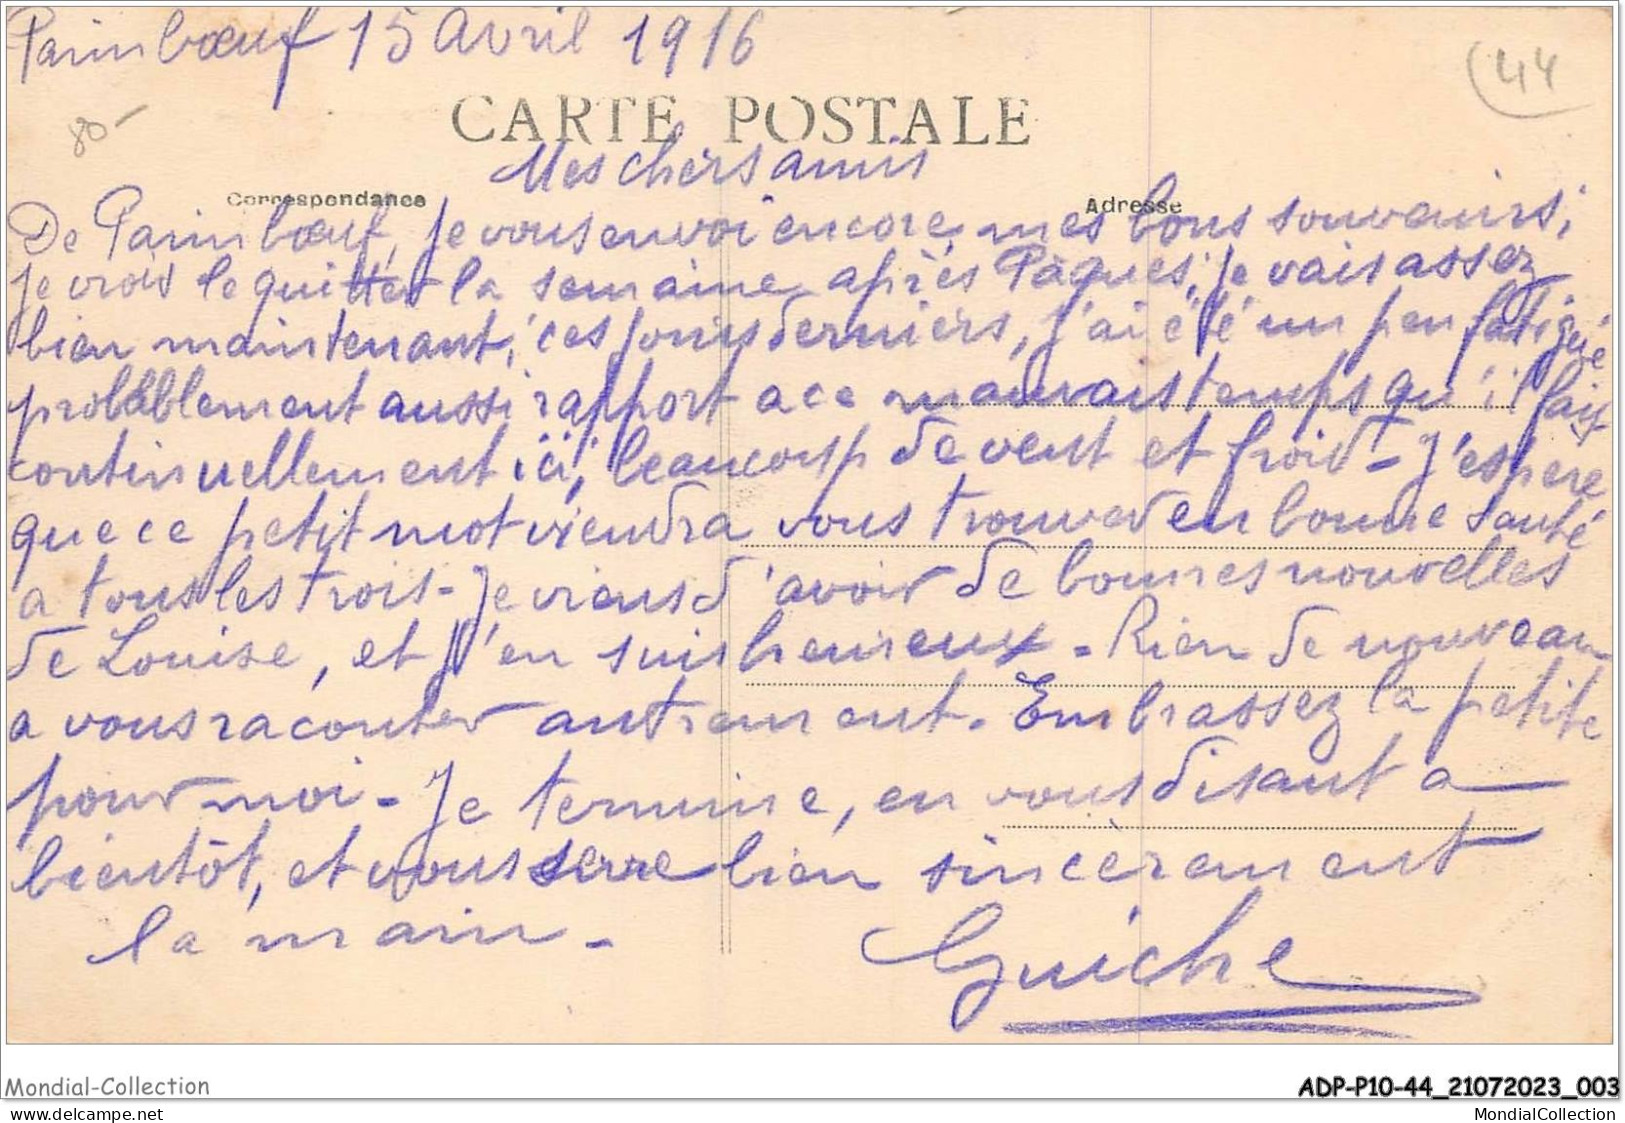 Paimbœuf 15 Avril 1916
(44
80-
CARTE POSTALE
Mes chers amis
Correspondance
Adresse
De Paimbœuf, je vous envoi encore mes bons souvenirs,
je crois le quitter la semaine après Pâques, je vais assez
bien maintenant, ces jours derniers, j'ai été un peu fatigué
probablement aussi rapport a ce mauvais temps qu'il fait
continuellement ici, beaucoup de vent et froid - J'espère
que ce petit mot viendra vous trouver en bonne santé
a tous les trois - Je viens d'avoir de bonnes nouvelles
de Louise, et j'en suis heureux - Rien de nouveau
a vous raconter autrement. Embrassez la petite
pour moi - Je termine, en vous disant a
bientôt, et vous serre bien sincèrement
la main -
Guiche
Mondial-Collection
ADP-P10-44_21072023_003
delcampe.net
MondialCollection